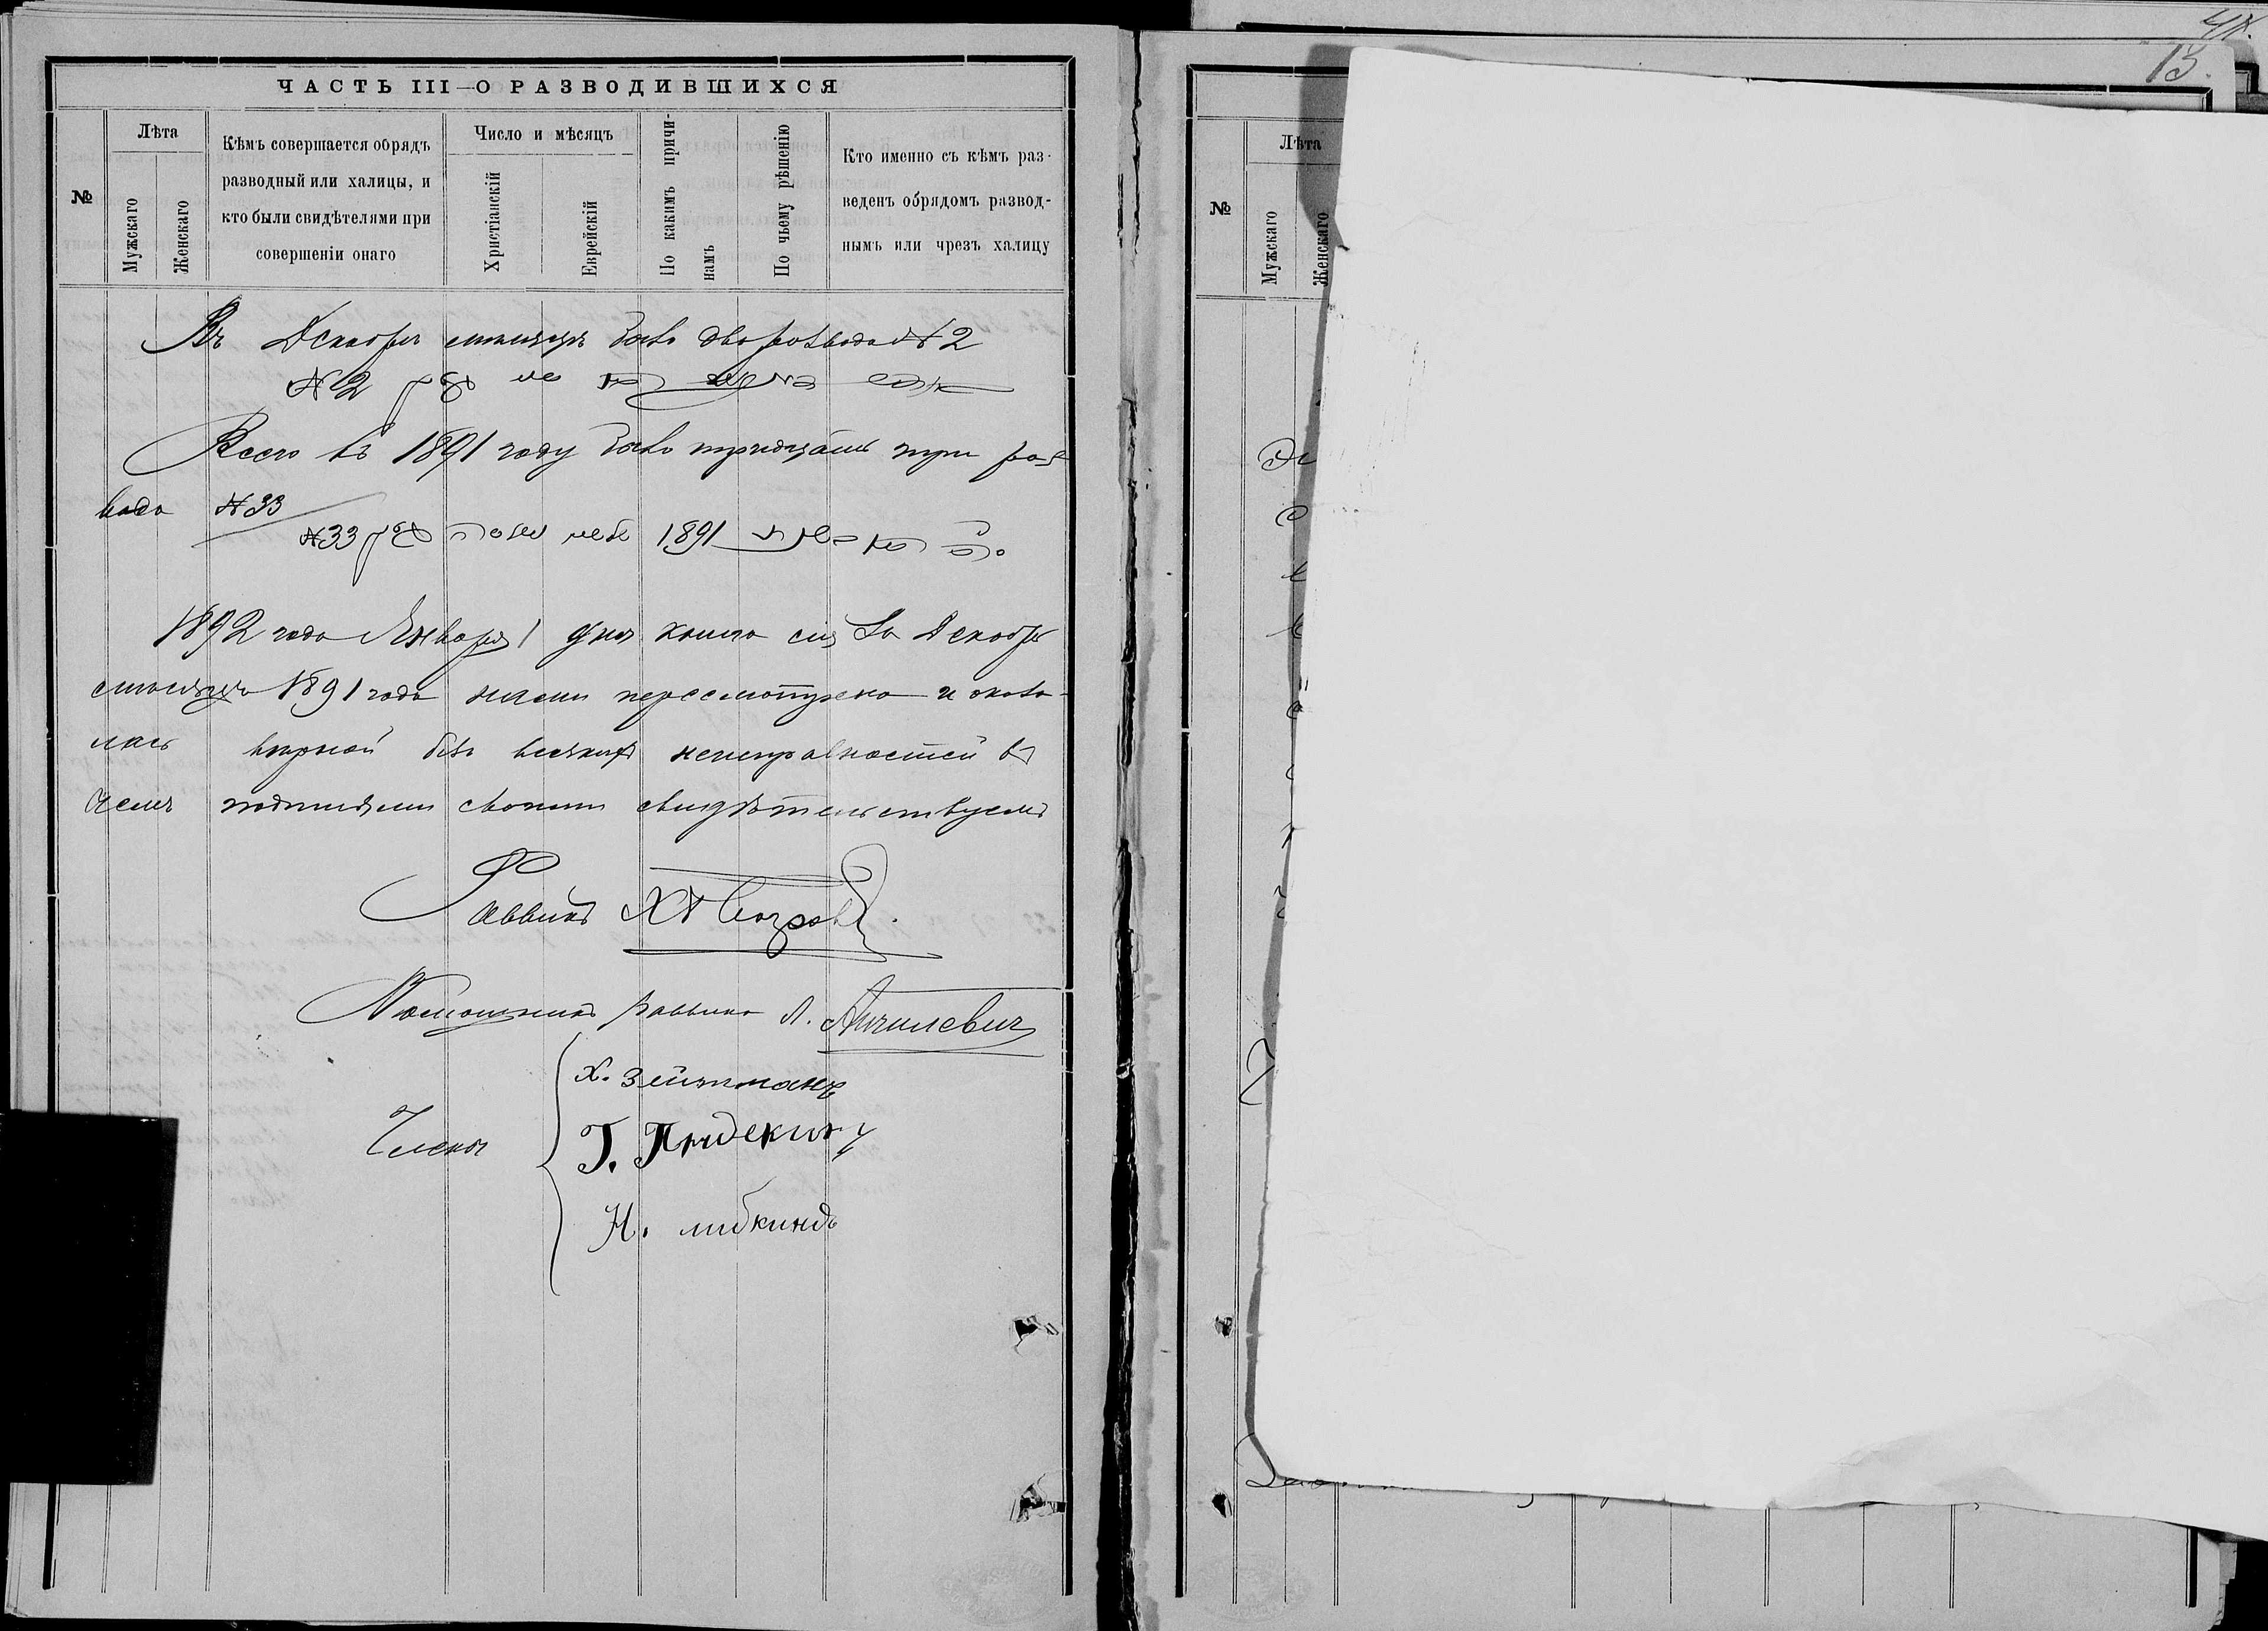 ЧАСТЬ III—О РАЗВОДИВШИХСЯ
№
Лѣта
Мужскаго
Женскаго
Кѣмъ совершается обрядъ
разводный или халицы, и
кто были свидѣтелями при
совершеніи онаго
Число и мѣсяцъ
Христіанскій
Еврейскій
По какимъ причи-
намъ
По чьему рѣшенію
Кто именно съ кѣмъ раз-
веденъ обрядомъ развод-
нымъ или чрезъ халицу
Въ Декабрѣ мѣсяцѣ было два развода № 2
№ 2
Всего въ 1891 году было тридцать три раз
вода № 33
№ 33 1891
1892 года Января 1 дня книга сія за Декабрь
мѣсяцъ 1891 года нами пересмотрена и оказа-
лась вѣрной безъ всякихъ неисправностей въ
чемъ подписями своими свидѣтельствуемъ
Раввинъ
Помощникъ раввина А. Анчилевич
Члены
Х. Зейтманъ
Г.
Н. либкиндъ
41.
13.
№
Лѣта
Мужскаго
Женскаго